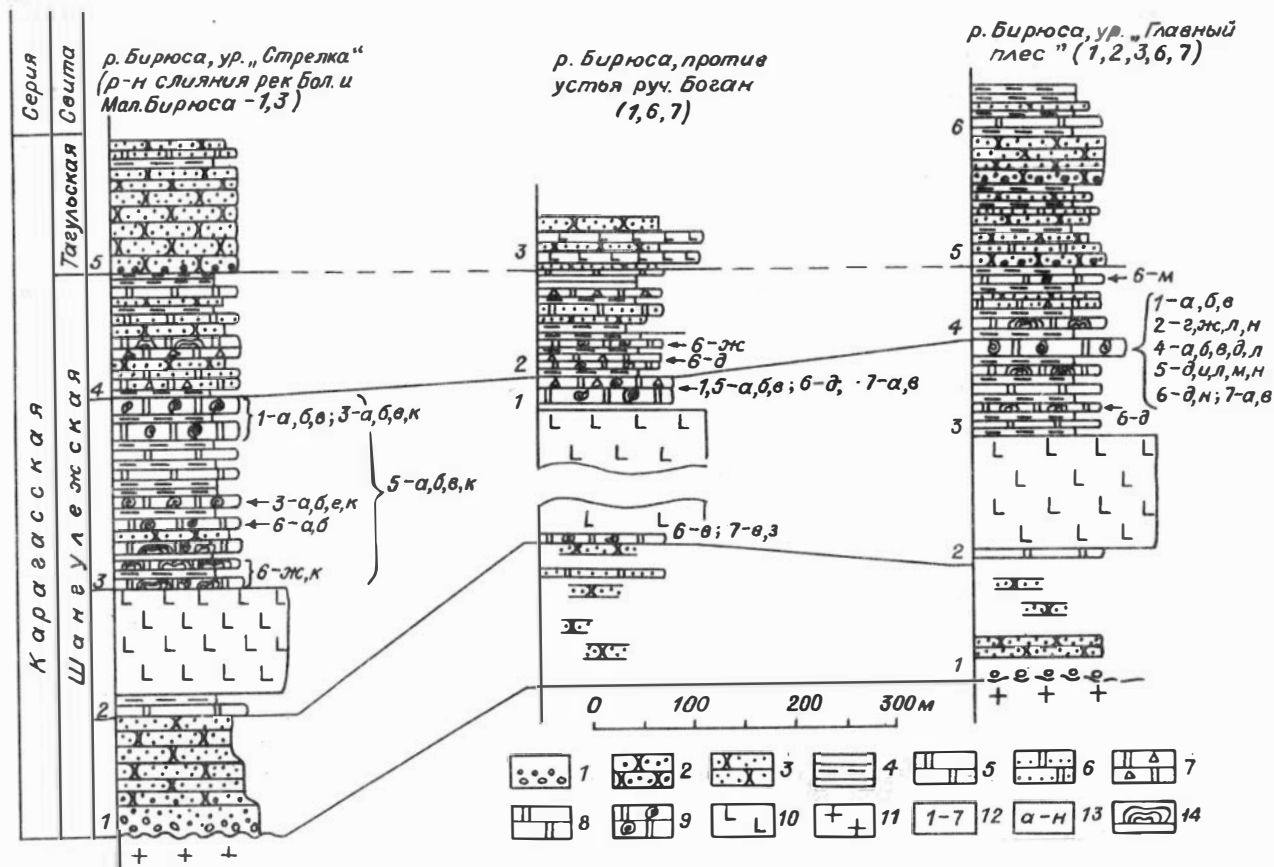 Серия
Свита
Карагасская
Тагульская
Шангулежская
р. Бирюса, ур. „Стрелка“
(р-н слияния рек Бол. и
Мал. Бирюса – 1,3)
5
4
3
2
1
1-а,б,в; 3-а,б,в,к
5-а,б,в,к
3-а,б,е,к
6-а,б
6-ж,к
р. Бирюса, против
устья руч. Боган
(1,6,7)
3
2
1
6-ж
6-д
1,5-а,б,в; 6-д; 7-а,в
6-в; 7-в,з
р. Бирюса, ур. „Главный
плес” (1,2,3,6,7)
6
5
4
3
2
1
6-м
1-а,б,в
2-г,ж,л,н
4-а,б,в,д,л
5-д,ц,л,м,н
6-д,н; 7-а,в
6-д
0 100 200 300 м
1 2 3 4 5 6 7
8 9 10 11 1-7 12 а-н 13 14